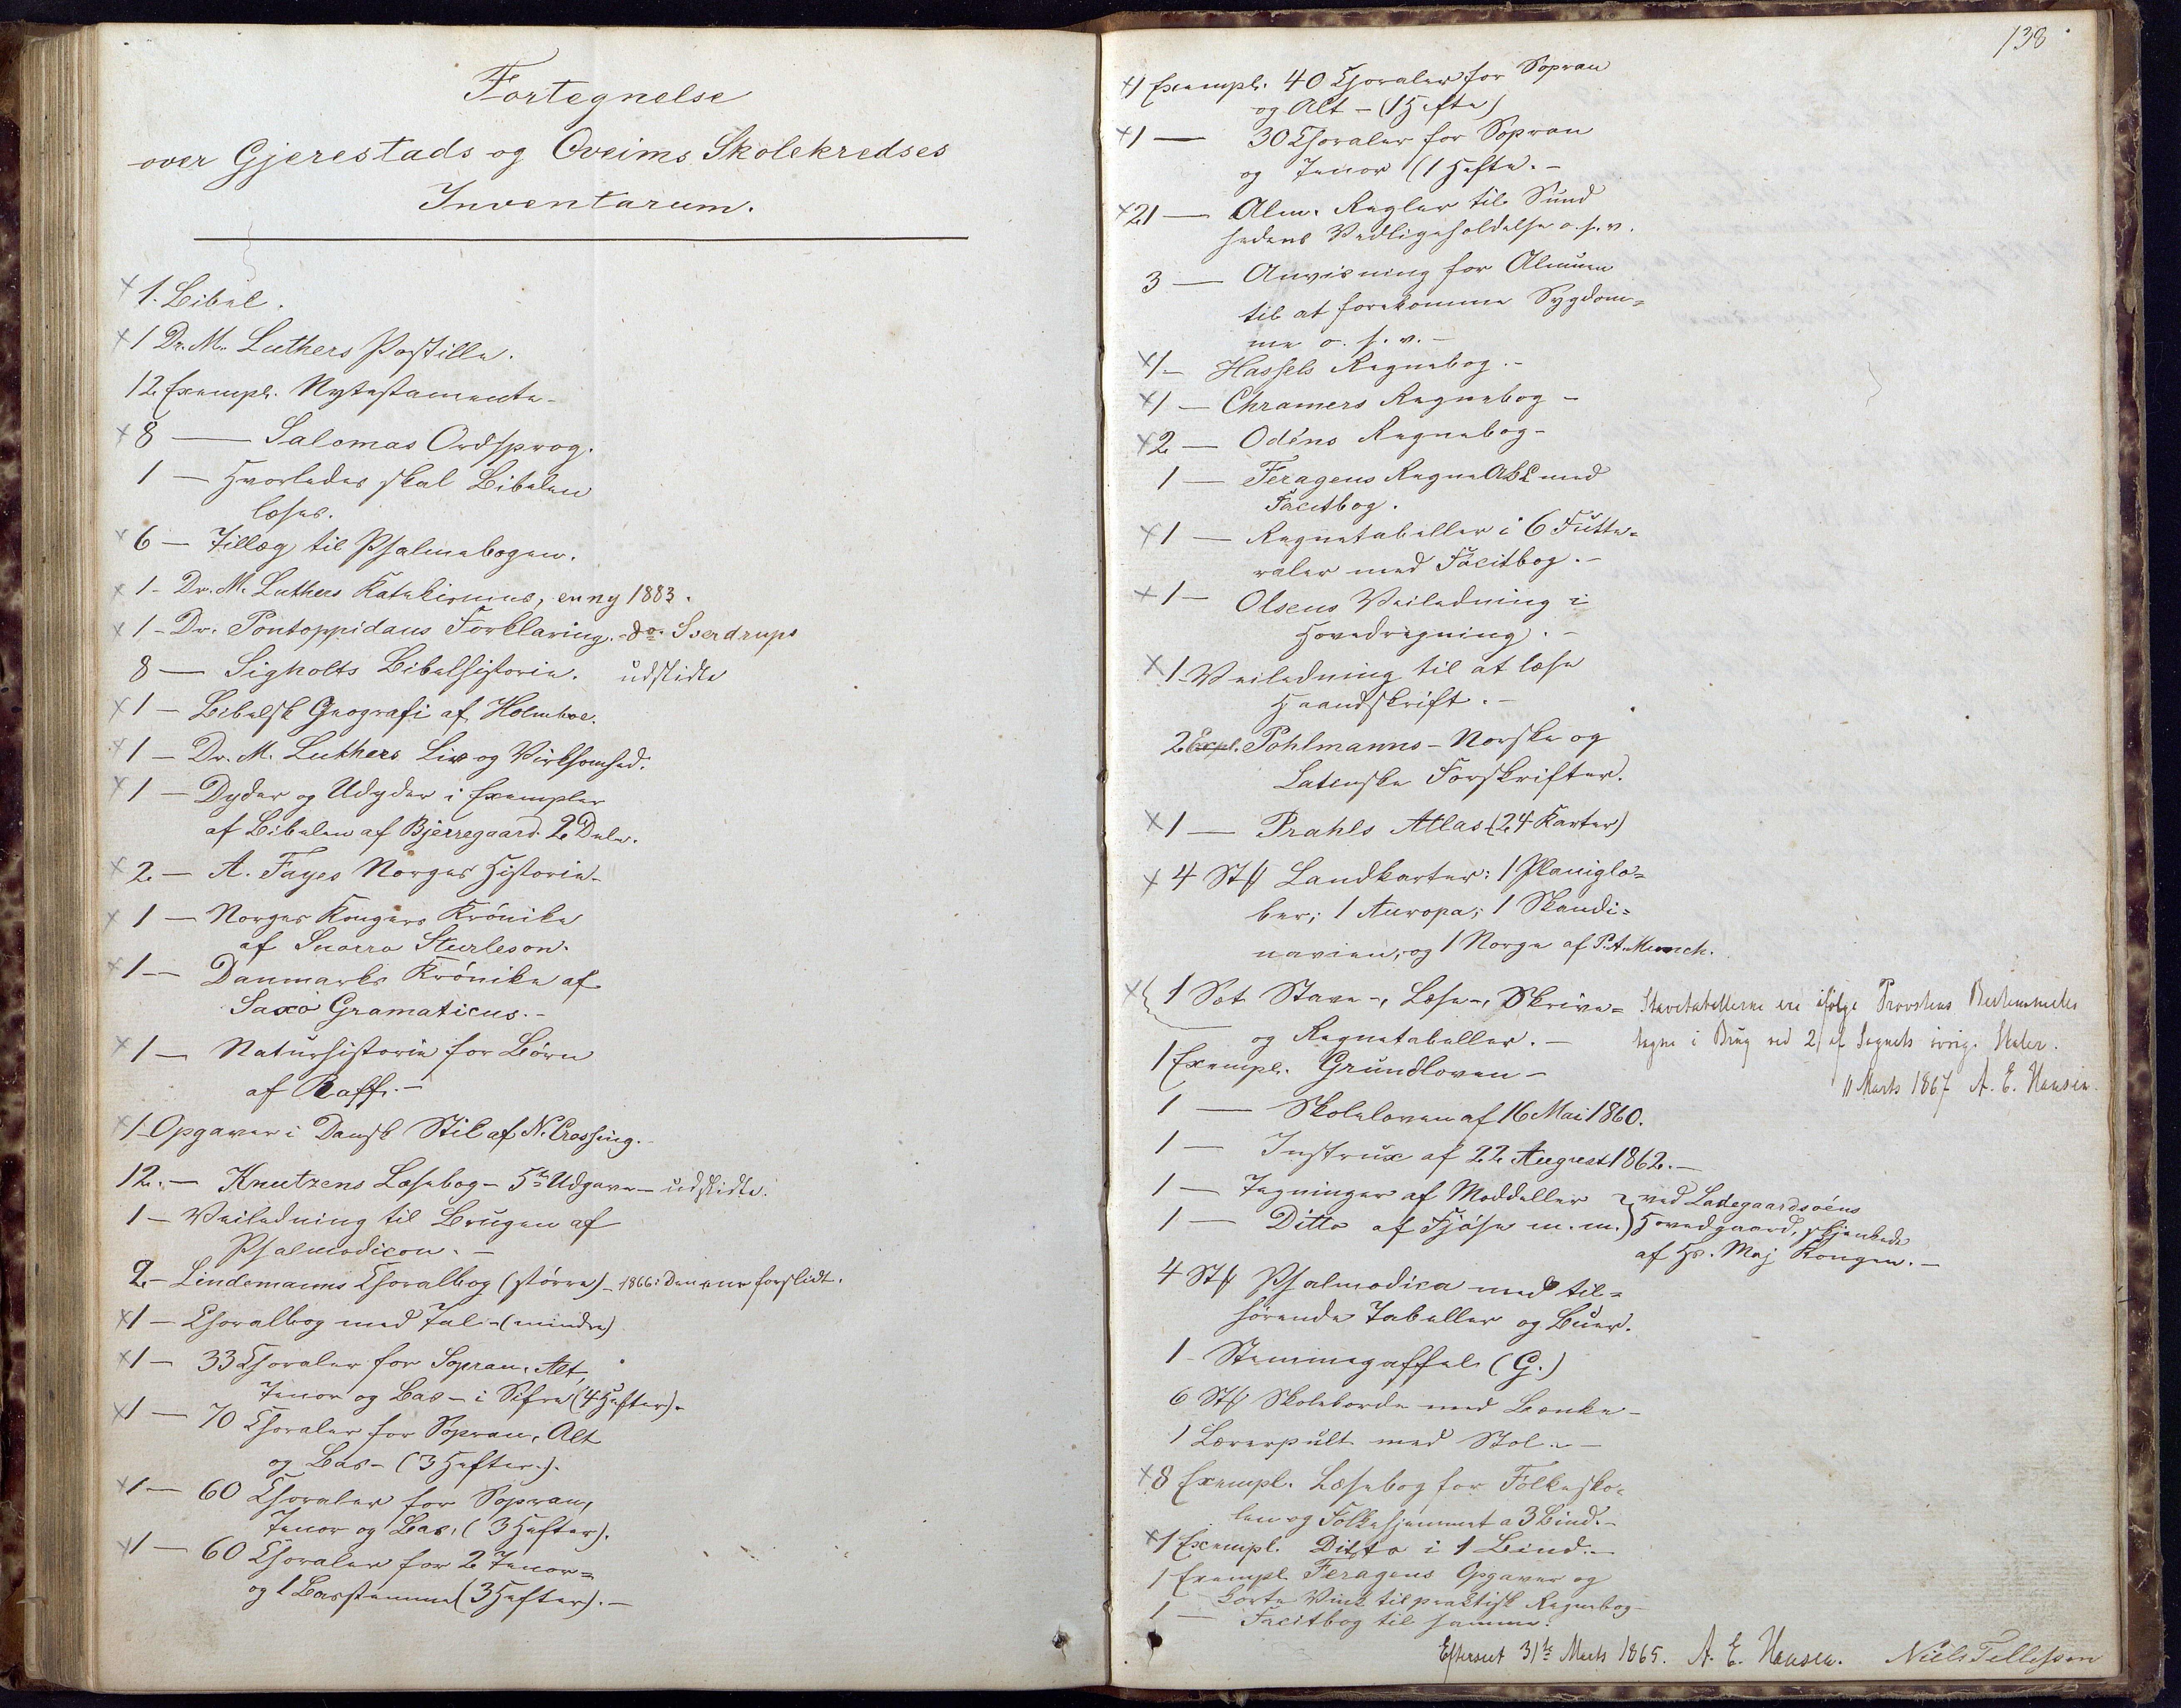 Fortegnelse
over Gjerestads og Qveims Skolekredses
Inventarum.
× 1. Bibel.
× 1 Dr. M. Luthers Postille.
12 Exempl. Nytestamente -
× 8 — Salomas Ordsprog.
1 — Hvorledes skal Bibelen
læses.
× 6 — Tillæg til Psalmebogen.
× 1 - Dr. M. Luthers Katekismus, en ny 1883.
× 1 - Dr. Pontoppidans Forklaring. - do Sverdrups
8 — Sigholts Bibelhistorie. udslidte
× 1 — Bibelsk Geografi af Holmboe.
× 1 — Dr. M. Luthers Liv og Virksomhed.
× 1 — Dyder og Udyder i Exempler
af Bibelen af Bjerregaard 2 Dele.
× 2 — A. Fayes Norges Historie -
× 1 — Norges Kongers Krönike
af Snorro Sturleson.
× 1 — Danmarks Krönike af
Saxo Gramaticus. -
× 1 — Naturhistorie for Börn
af Raff. -
× 1 - Opgaver i Dansk Stil af N. Crossing.
12. — Knutzens Læsebog - 5te Udgave - udslidte.
1 — Veiledning til Brugen af
Psalmodicon. -
2 - Lindemanns Choralbog (större) - 1866: Den ene forslidt.
× 1 — Choralbog med Tal - (mindre)
× 1 — 33 Choraler for Sopran, Alt,
Tenor og Bas - i Sifre (4 Hefter).
× 1 — 70 Choraler for Sopran, Alt
og Bas - (3 Hefter).
× 1 — 60 Choraler for Sopran,
Tenor og Bas, (3 Hefter).
× 1 — 60 Choraler for 2 Tenor=
og 1 Basstemme (3 Hefter). -
138
× 1 Exempl. 40 Choraler for Sopran
og Alt - (1 Hefte)
× 1 — 30 Choraler for Sopran
og Tenor (1 Hefte. -
× 21 — Alm. Regler til Sund
hedens Vedligeholdelse o. s. v.
3 — Anvisning for Almuen
til at forekomme Sygdom=
me o. s. v. -
× 1 - Hassels Regnebog. -
× 1 — Chramers Regnebog -
× 2 — Odéns Regnebog -
1 — Feragens Regne ABC med
Facitbog.
× 1 — Regnetabeller i 6 Futte=
raler med Facitbog. -
× 1 — Olsens Veiledning i
Hovedregning. -
× 1 - Veiledning til at læse
Haandskrift. -
2 Expl. Pohlmanns - Norske og
Latinske Forskrifter.
× 1 — Prahls Atlas (24 Karter)
× 4 Stk Landkarter: 1 Planiglo=
ber; 1 Auropa; 1 Skandi=
navien, og 1 Norge af P. A. Munch.
× 1 Sæt Stave-, Læse-, Skrive= Stavetabellerne ere ifölge Provstens Bestemmelse
og Regnetabeller. - tagne i Brug ved 2 af Sognets övrige Skoler.
11 Marts 1867 A. E. Hansen.
1 Exempl. Grundloven -
1 — Skoleloven af 16 Mai 1860.
1 — Instrux af 22 August 1862. -
1 — Tegninger af Moddeller } ved Ladegaardsöens
1 — Ditto af Fjöse m. m. } Hovedgaard, skjenkede
af Hs. Maj Kongen. -
4 Stk Psalmodica med til=
hörende Tabeller og Buer.
1 - Stemmegaffel (G.)
6 Stk Skoleborde med Bænke -
1 Lærerpult med Stol. -
× 8 Exempl. Læsebog for Folkesko=
len og Folkehjemmet a 3 Bind. -
× 1 Exempl. Ditto i 1 Bind. -
1 Exempl Feragens Opgaver og
korte Vink til praktisk Regnebog -
1 — Facitbog til samme.
Efterseet 31te Marts 1865. A. E. Hansen. Niels Tellefsen